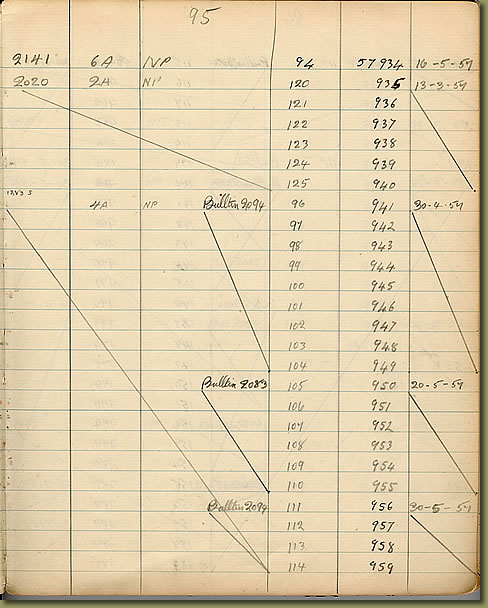 95
2141 6A NP 94 57934 16-5-59
2020 2A NP 120 935 13-3-59
121 936
122 937
123 938
124 939
125 940
4A NP Bulltin 2094 96 941 30-4-59
97 942
98 943
99 944
100 945
101 946
102 947
103 948
104 949
Bulltin 2083 105 950 20-5-59
106 951
107 952
108 953
109 954
110 955
Bulltin 2094 111 956 30-5-59
112 957
113 958
114 959